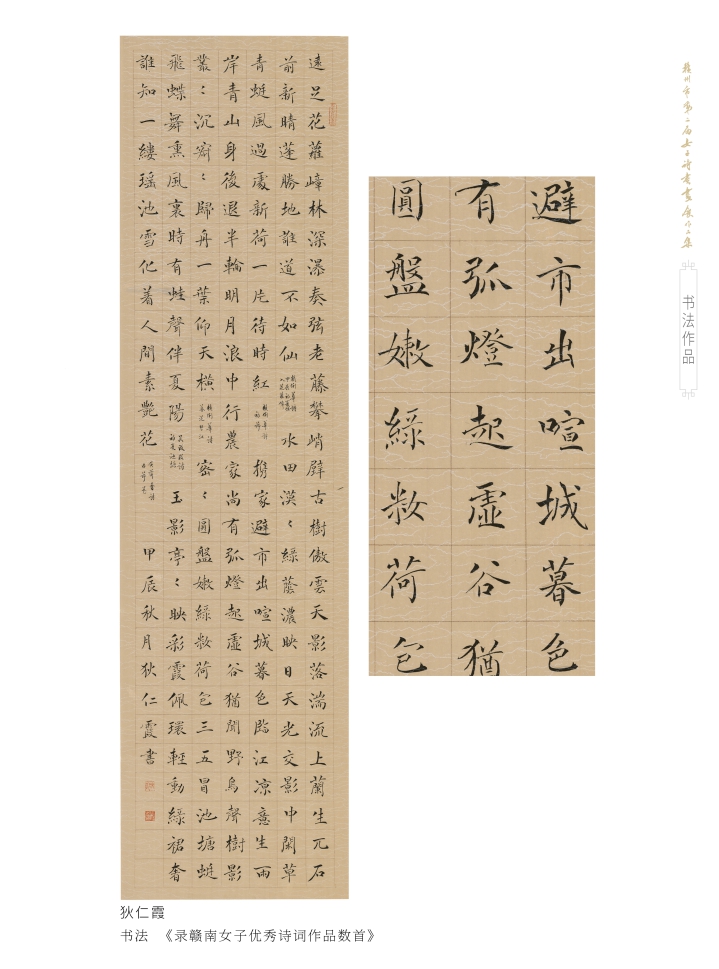 遠足花蘿嶂林深瀑奏弦老藤攀峭壁古樹傲雲天影落湍流上蘭生兀石
前新晴蓬勝地誰道不如仙 水田漠〻綠蔭濃映日天光交影中閑草
青蜓風過處新荷一片待時紅 携家避市出喧城暮色臨江凉意生兩
岸青山身後退半輪明月浪中行農家尚有弧燈起虛谷猶聞野鳥聲樹影
叢〻沉窈〻歸舟一葉仰天橫 密〻圓盤嫩綠妝荷包三五冒池塘蜓
飛蝶舞熏風裏時有蛙聲伴夏陽 玉影亭〻映彩霞佩環輕動綠裙奢
誰知一縷瑶池雪化着人間素艷花 甲辰秋月狄仁霞書
避市出喧城暮色
有弧燈起虛谷猶
圓盤嫩綠妝荷包
书法作品
狄仁霞
书法 《录赣南女子优秀诗词作品数首》